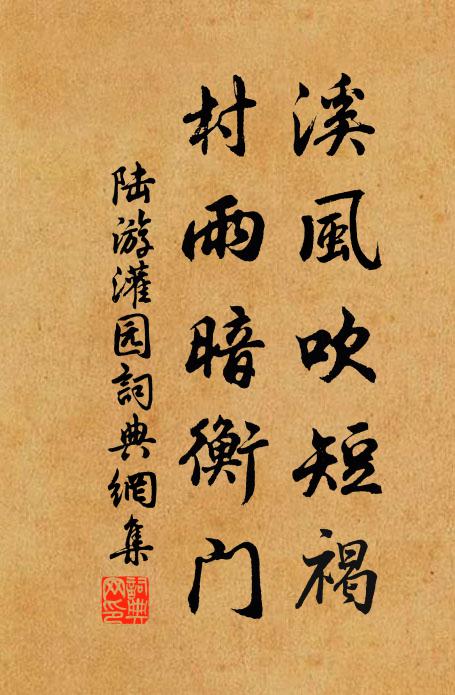 溪風吹短褐
村雨暗衡门
陆游灌园詞典網集
詞典
网印